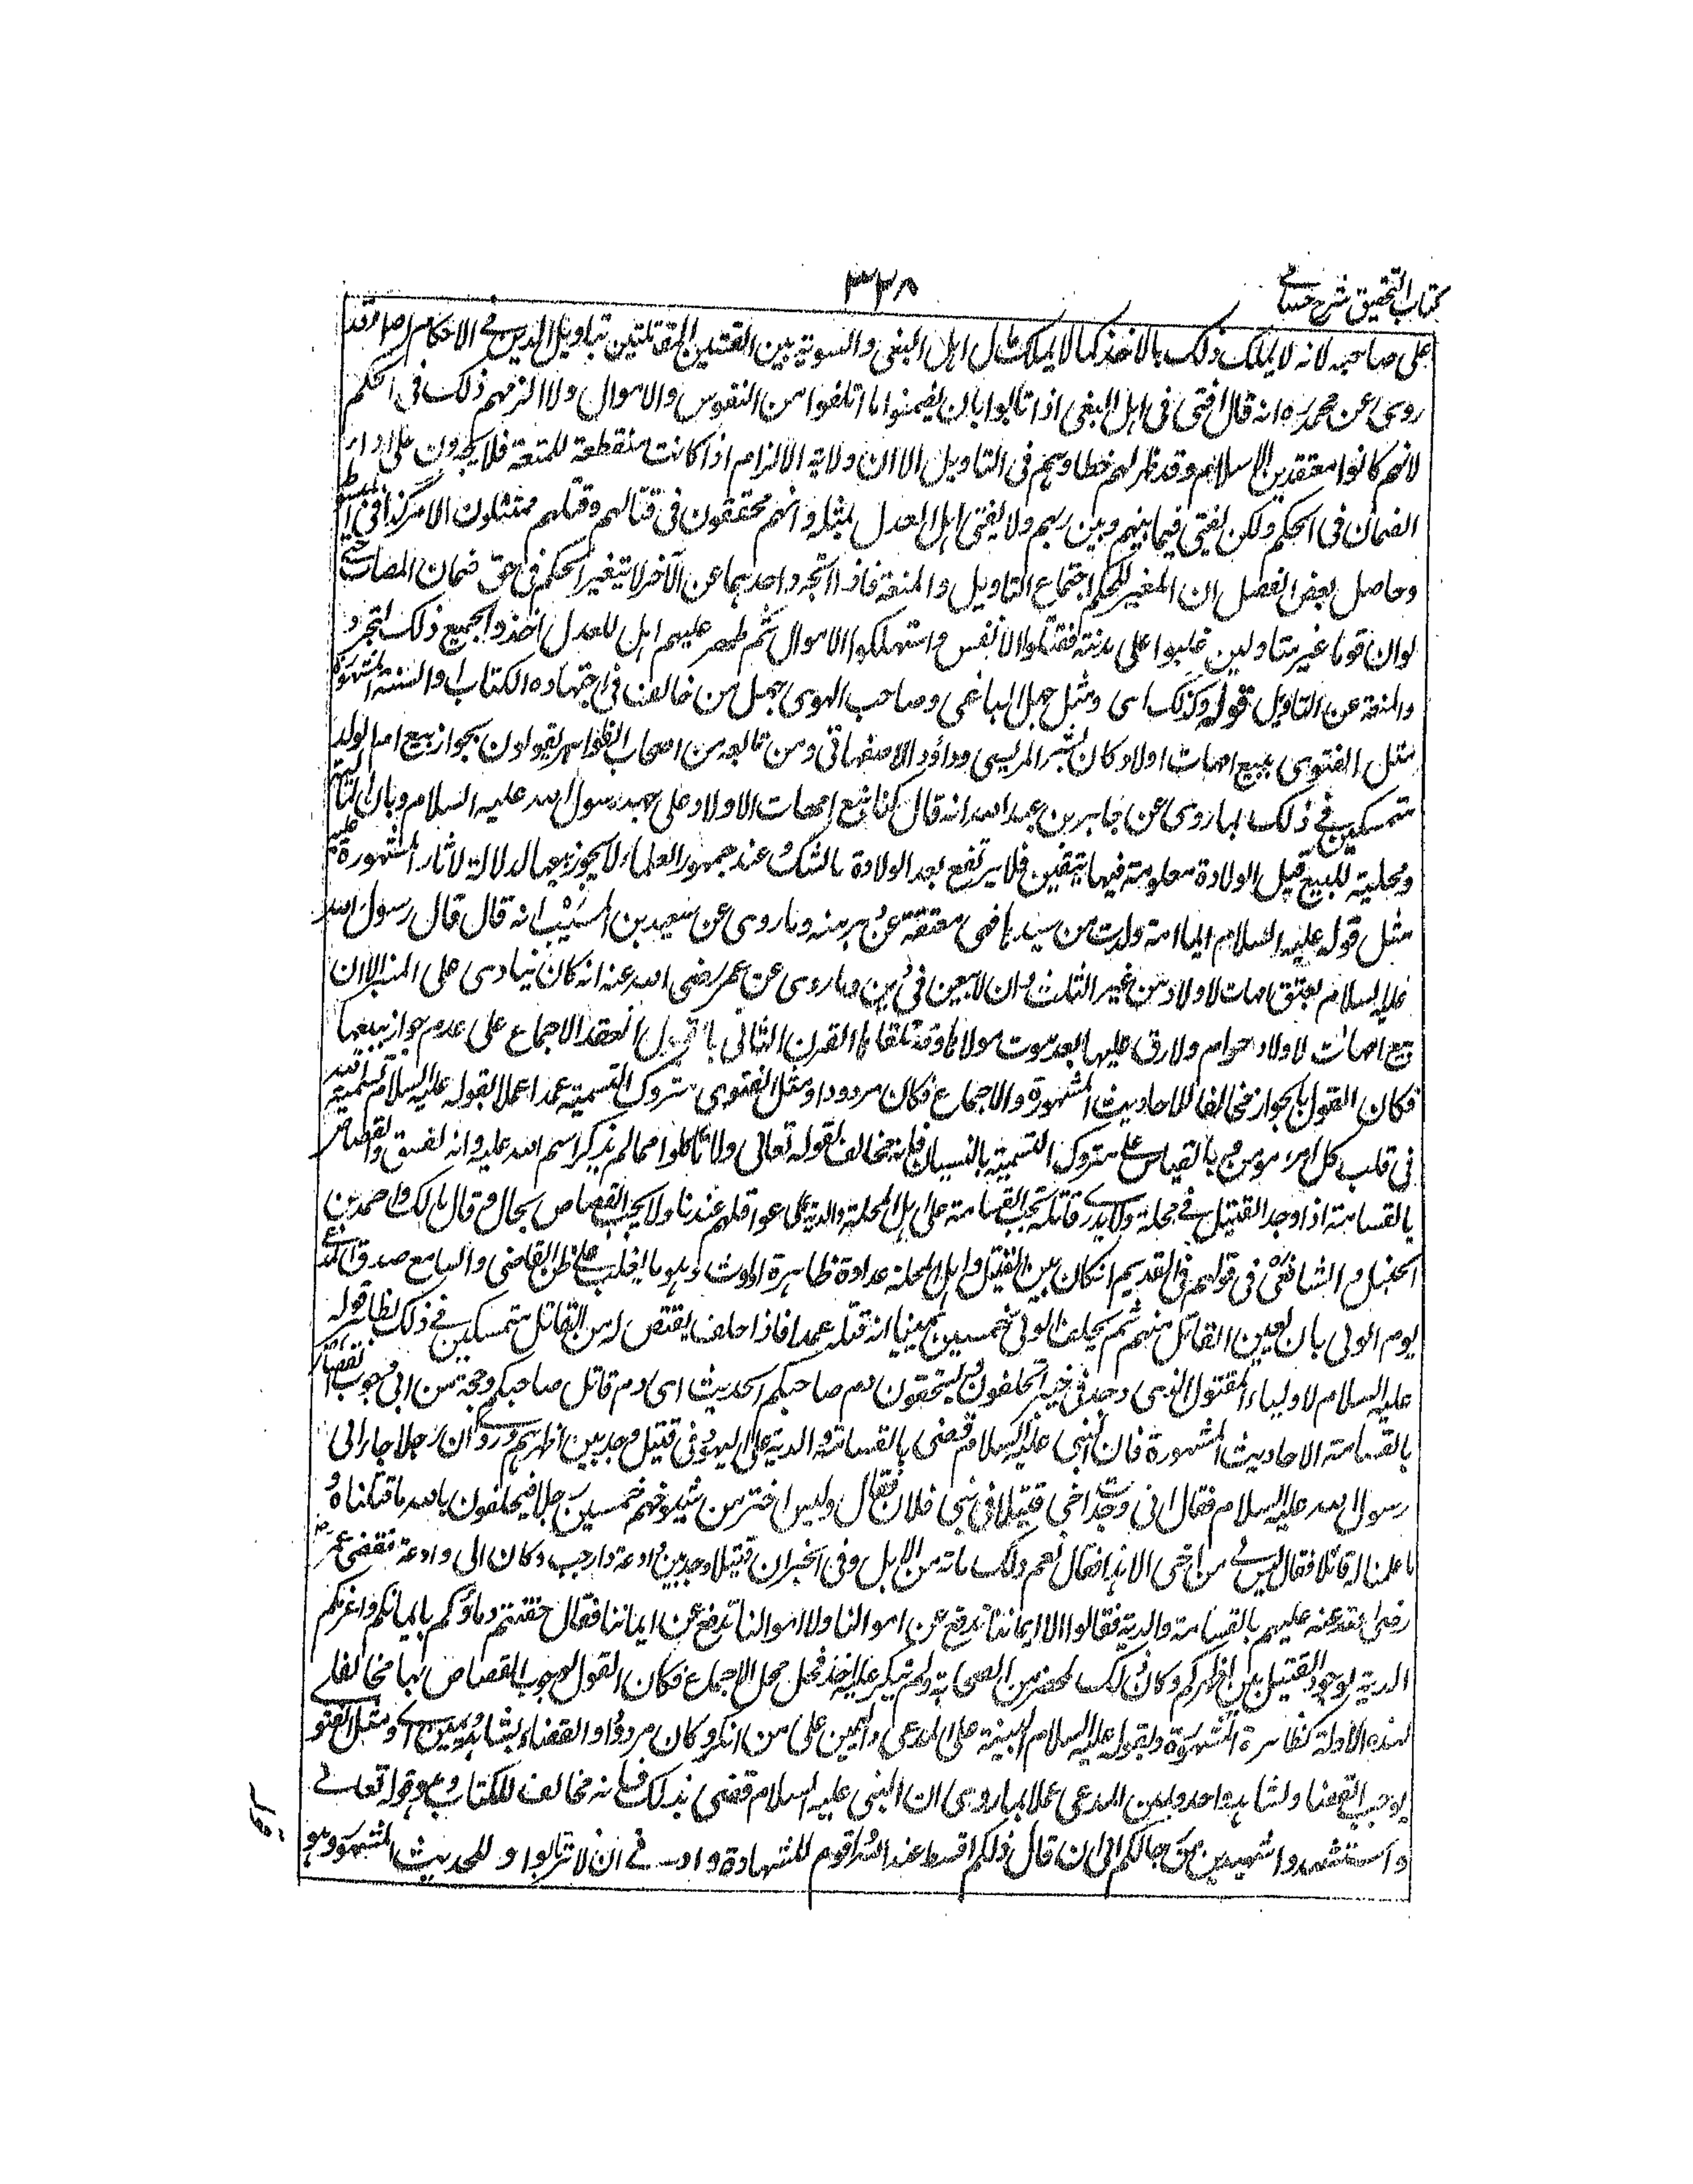 كتاب التحقيق شرح حسامى
٣٣٨
على صاحبه لانه لا يملك ذلك بالاخذ كما لا يملك مال اهل البغى والسوية بين الفئتين المتقاتلتين بتاويل الدين فى الاحكام اصل وقد
روى عن محمد رح انه قال افتى فى اهل البغى اذا تابوا بان يضمنوا ما اتلفوا من النفوس والاموال ولا الزمهم ذلك فى الحكم
لانهم كانوا معتقدين الاسلام وقد ظهر لهم خطاؤهم فى التاويل الا ان ولاية الالزام اذا كانت منقطعة للمنعة فلا يجبرون على اداء
الضمان فى الحكم ولكن يفتى فيما بينهم وبين ربهم ولا يفتى اهل العدل بمثله وانهم محققون فى قتالهم وقتلهم ممتثلون الامر كذا فى المبسوط
وحاصل بعض الفصل ان المغير للحكم اجتماع التاويل والمنعة فاذا تجرد احدهما عن الآخر لا يتغير الحكم فى حق ضمان المصاب حتى
لو ان قوما غير متاولين غلبوا على مدينة فقتلوا الانفس واستهلكوا الاموال ثم ظهر عليهم اهل العدل اخذوا بجميع ذلك لتجرد
والمنعة عن التاويل قوله وكذلك اى ومثل جهل الباغى وصاحب الهوى جهل من خالف فى اجتهاده الكتاب والسنة المشهورة
مثل الفتوى ببيع امهات اولاد كان بشر المريسى وداؤد الاصفهانى ومن تابعه من اصحاب الظواهر يقولون بجواز بيع ام الولد
متمسكين فى ذلك بما روى عن جابر بن عبد الله انه قال كنا نبيع امهات الاولاد على عهد رسول الله عليه السلام وبان المالية
ومحلية للبيع قبل الولادة معلومة فيها بيقين فلا يرتفع بعد الولادة بالشك وعند جمهور العلماء لا يجوز بيعها لدلالة لاثار المشهورة عليه
مثل قوله عليه السلام ايما امة ولدت من سيدها فهى معتقة عن دبر منه وما روى عن سعيد بن المسيب انه قال قال رسول الله
عليه السلام بعتق امهات لاولاد من غير الثلث وان لا يبعن فى دين وما روى عن عمر رضى الله عنه انه كان ينادى على المنبر الا ان
بيع امهات لاولاد حرام ولا رق عليها بعد موت مولاها وقد تلقاها القرن الثانى بالقبول انعقد الاجماع على عدم جواز بيعها
فكان القول بالجواز مخالفا للاحاديث المشهورة والاجماع فكان مردودا ومثل الفتوى متروك التسمية عمدا عملا بقوله عليه السلام تسمية الله
فى قلب كل امرء مومن و بالقياس على متروك التسمية بالنسيان فانه مخالف لقوله تعالى ولا تاكلوا مما لم يذكر اسم الله عليه وانه لفسق والقصاص
بالقسامة اذا وجد القتيل فى محلة ولا يدرى قاتله تجب القسامة على اهل المحلة والدية على عواقلهم عندنا ولا يجب القصاص بحال وقال مالك واحمد بن
الحنبل والشافعى فى قولهم فى القديم ان كان بين القتيل و اهل المحلة عداوة ظاهرة او لوث وهو ما يغلب على ظن القاضى والسامع صدق المدعى
يوم الولى بان يعين القاتل منهم ثم يحلف الولى خمسين يمينا انه قتله عمدا فاذا حلف يقتص له من القاتل متمسكين فى ذلك بظاهر قوله
عليه السلام لاولياء المقتول الذى وجد فى خيبر اتحلفون وتستحقون دم صاحبكم الحديث اى دم قاتل صاحبكم وحجة من ابى وجوب القصاص
بالقسامة الاحاديث المشهورة فان النبى عليه السلام قضى بالقسامة والدية على اليهود فى قتيل وجد بين اظهرهم وروى ان رجلا جاء الى
رسول الله عليه السلام فقال انى وجدت اخى قتيلا فى بنى فلان فقال وليس اختر من شيوخهم خمسين رجلا فيحلفون بالله ما قتلناه و
ما علمنا له قاتلا فقال ليس لى من اخى الا هذا فقال نعم ولك مائة من الابل وفى الخبر ان قتيلا وجد بين وادعة وارحب وكان الى وادعة فقضى عمر
رضى الله عنه عليهم بالقسامة والدية فقالوا لا ايماننا تدفع عن اموالنا ولا اموالنا تدفع عن ايماننا فقال حقنتم دماؤكم بايمانكم واغرمكم
الدية لوجود القتيل بين اظهركم وكان ذلك بمحضر من الصحابة ولم ينكر عليه احد فحل محل الاجماع فكان القول بوجوب القصاص بها مخالفا
لهذه الادلة الظاهرة المشهورة ولقوله عليه السلام البينة على المدعى واليمين على من انكر وكان مردودا والقضاء بشاهد ويمين اى ومثل الفتوى
يوجب القضاء بشاهد واحد ويمين المدعى عملا بما روى ان النبى عليه السلام قضى بذلك فانه مخالف للكتاب وهو قوله تعالى
واستشهدوا شهيدين من رجالكم الى ان قال ذلكم اقسط عند الله واقوم للشهادة وادنى ان لا ترتابوا وللحديث المشهور وهو
قوله